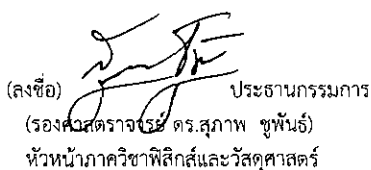 (ลงชื่อ) ประธานกรรมการ
(รองศาสตราจารย์ ดร.สุภาพ ชูพันธ์)
หัวหน้าภาควิชาฟิสิกส์และวัสดุศาสตร์